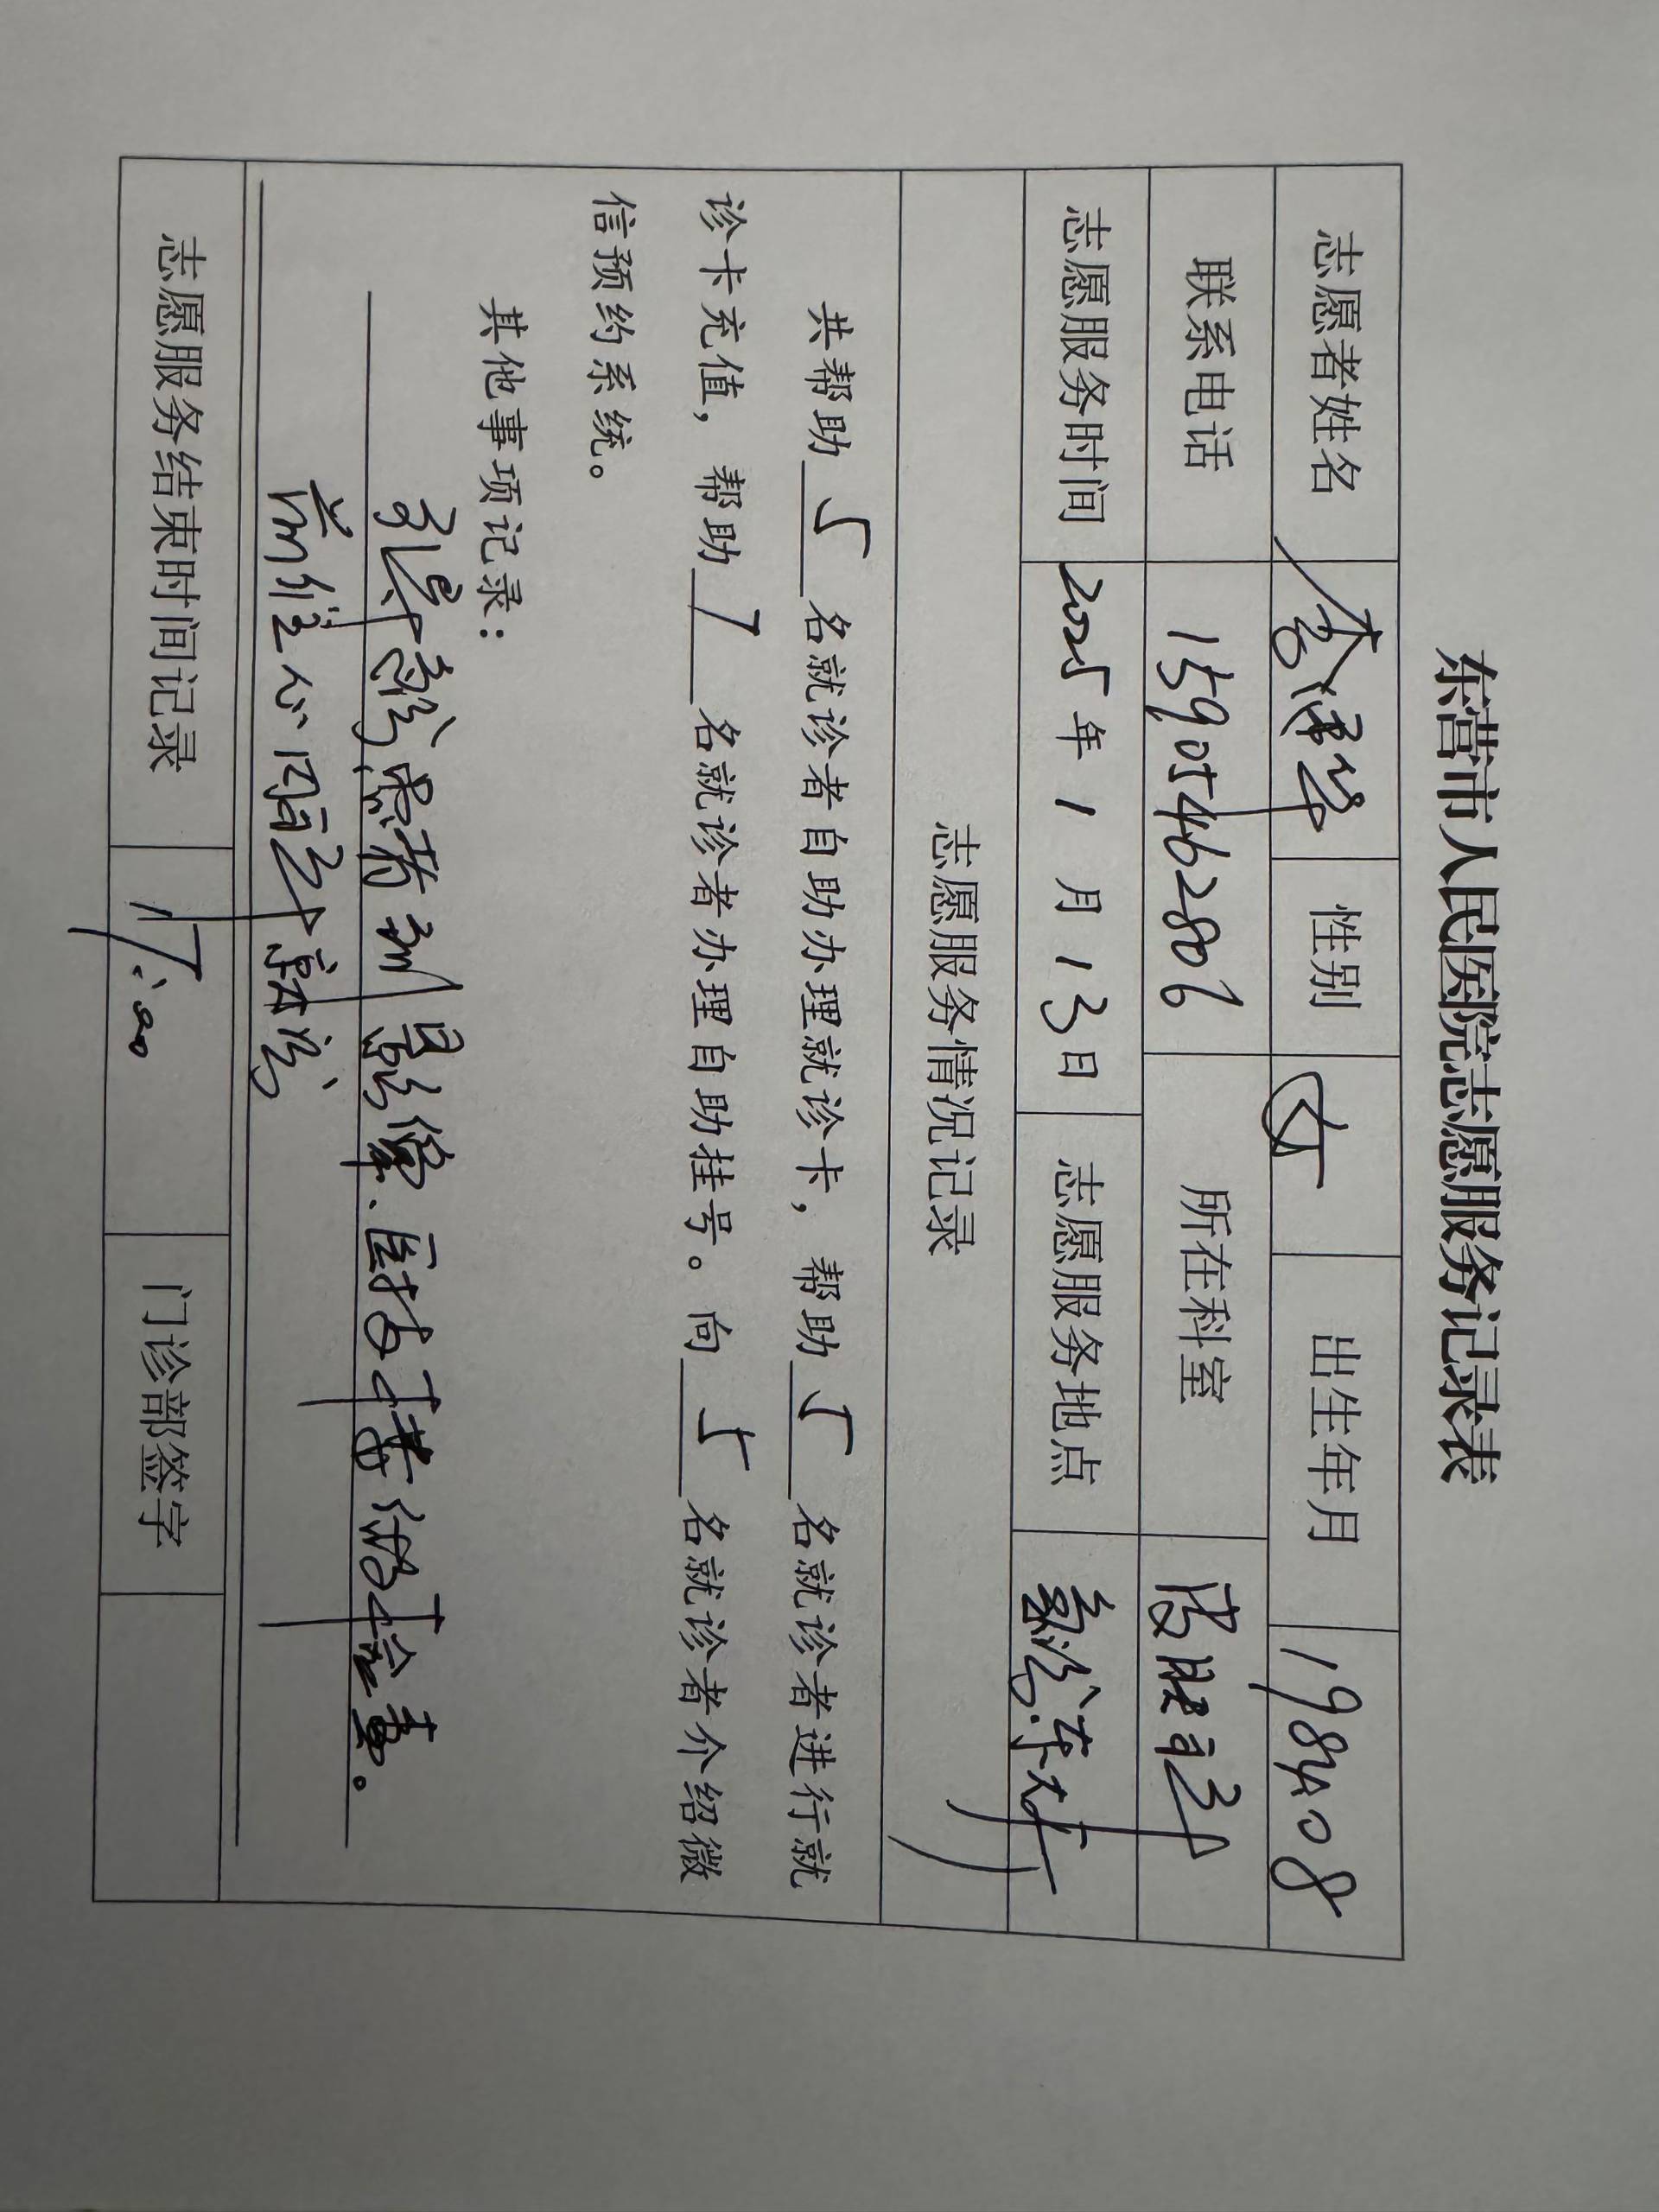 东营市人民医院志愿服务记录表
志愿者姓名 李 华 性别 女 出生年月 198408
联系电话 15905462806 所在科室
志愿服务时间 2025年1月13日 志愿服务地点 新门诊大
志愿服务情况记录
共帮助 5 名就诊者自助办理就诊卡，帮助 5 名就诊者进行就
诊卡充值，帮助 7 名就诊者办理自助挂号。向 5 名就诊者介绍微
信预约系统。
其他事项记录：
引导 患者到影像、医技楼做检查。
前往心内科就诊
志愿服务结束时间记录 17:00 门诊部签字